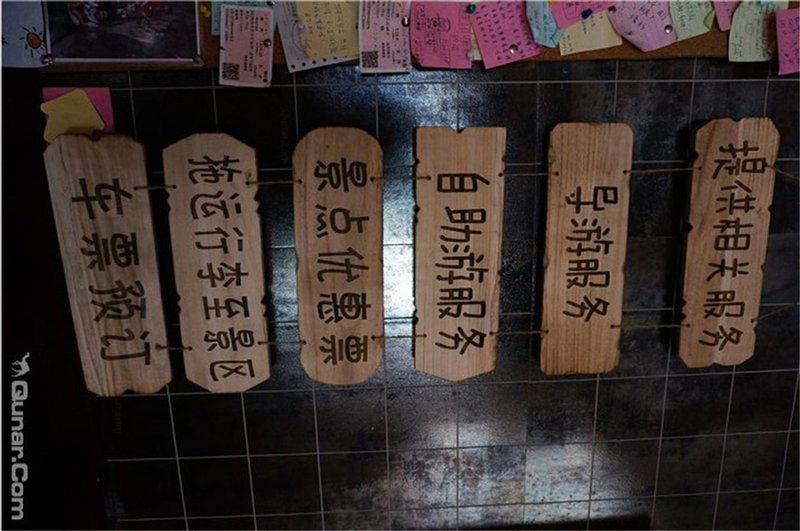 提供相关服务
导游服务
自助游服务
景点优惠票
拖运行李至景区
车票预订
Qunar.Com